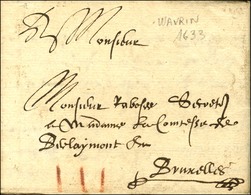 WAVRIN
1633
A Monsieur
Monsieur Robosse Secret
de Madame la Comtesse de
Berlaymont &c
Bruxelles